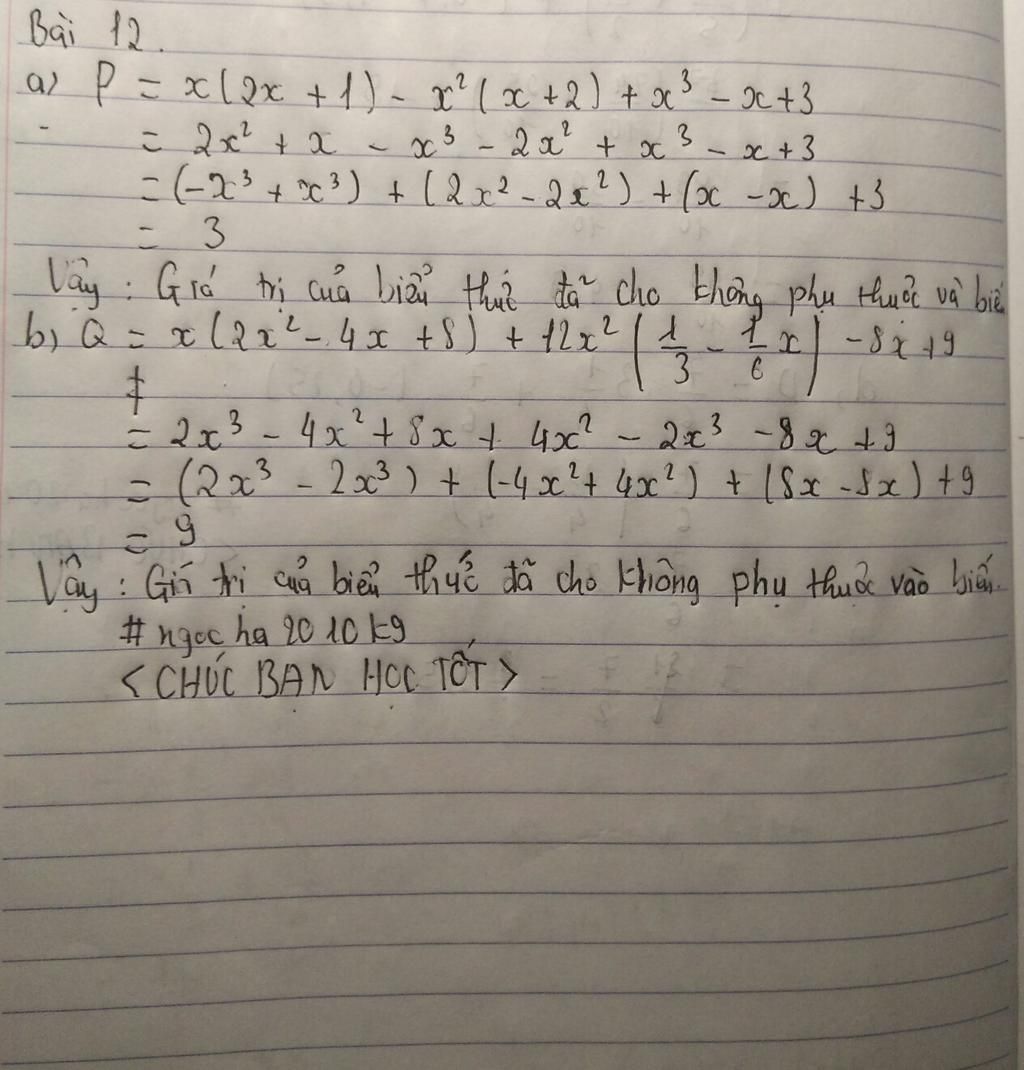 Bài 12.
a) P = x(2x + 1) - x²(x + 2) + x³ - x + 3
= 2x² + x - x³ - 2x² + x³ - x + 3
= (-x³ + x³) + (2x² - 2x²) + (x - x) + 3
= 3
Vậy : Giá trị của biểu thức đã cho không phụ thuộc và biế
b) Q = x(2x² - 4x + 8) + 12x² (1/3 - 1/6 x) - 8x + 9
= 2x³ - 4x² + 8x + 4x² - 2x³ - 8x + 9
= (2x³ - 2x³) + (-4x² + 4x²) + (8x - 8x) + 9
= 9
Vậy : Giá trị của biểu thức đã cho không phụ thuộc vào biến.
# ngocha2010kg
<CHÚC BẠN HỌC TỐT>